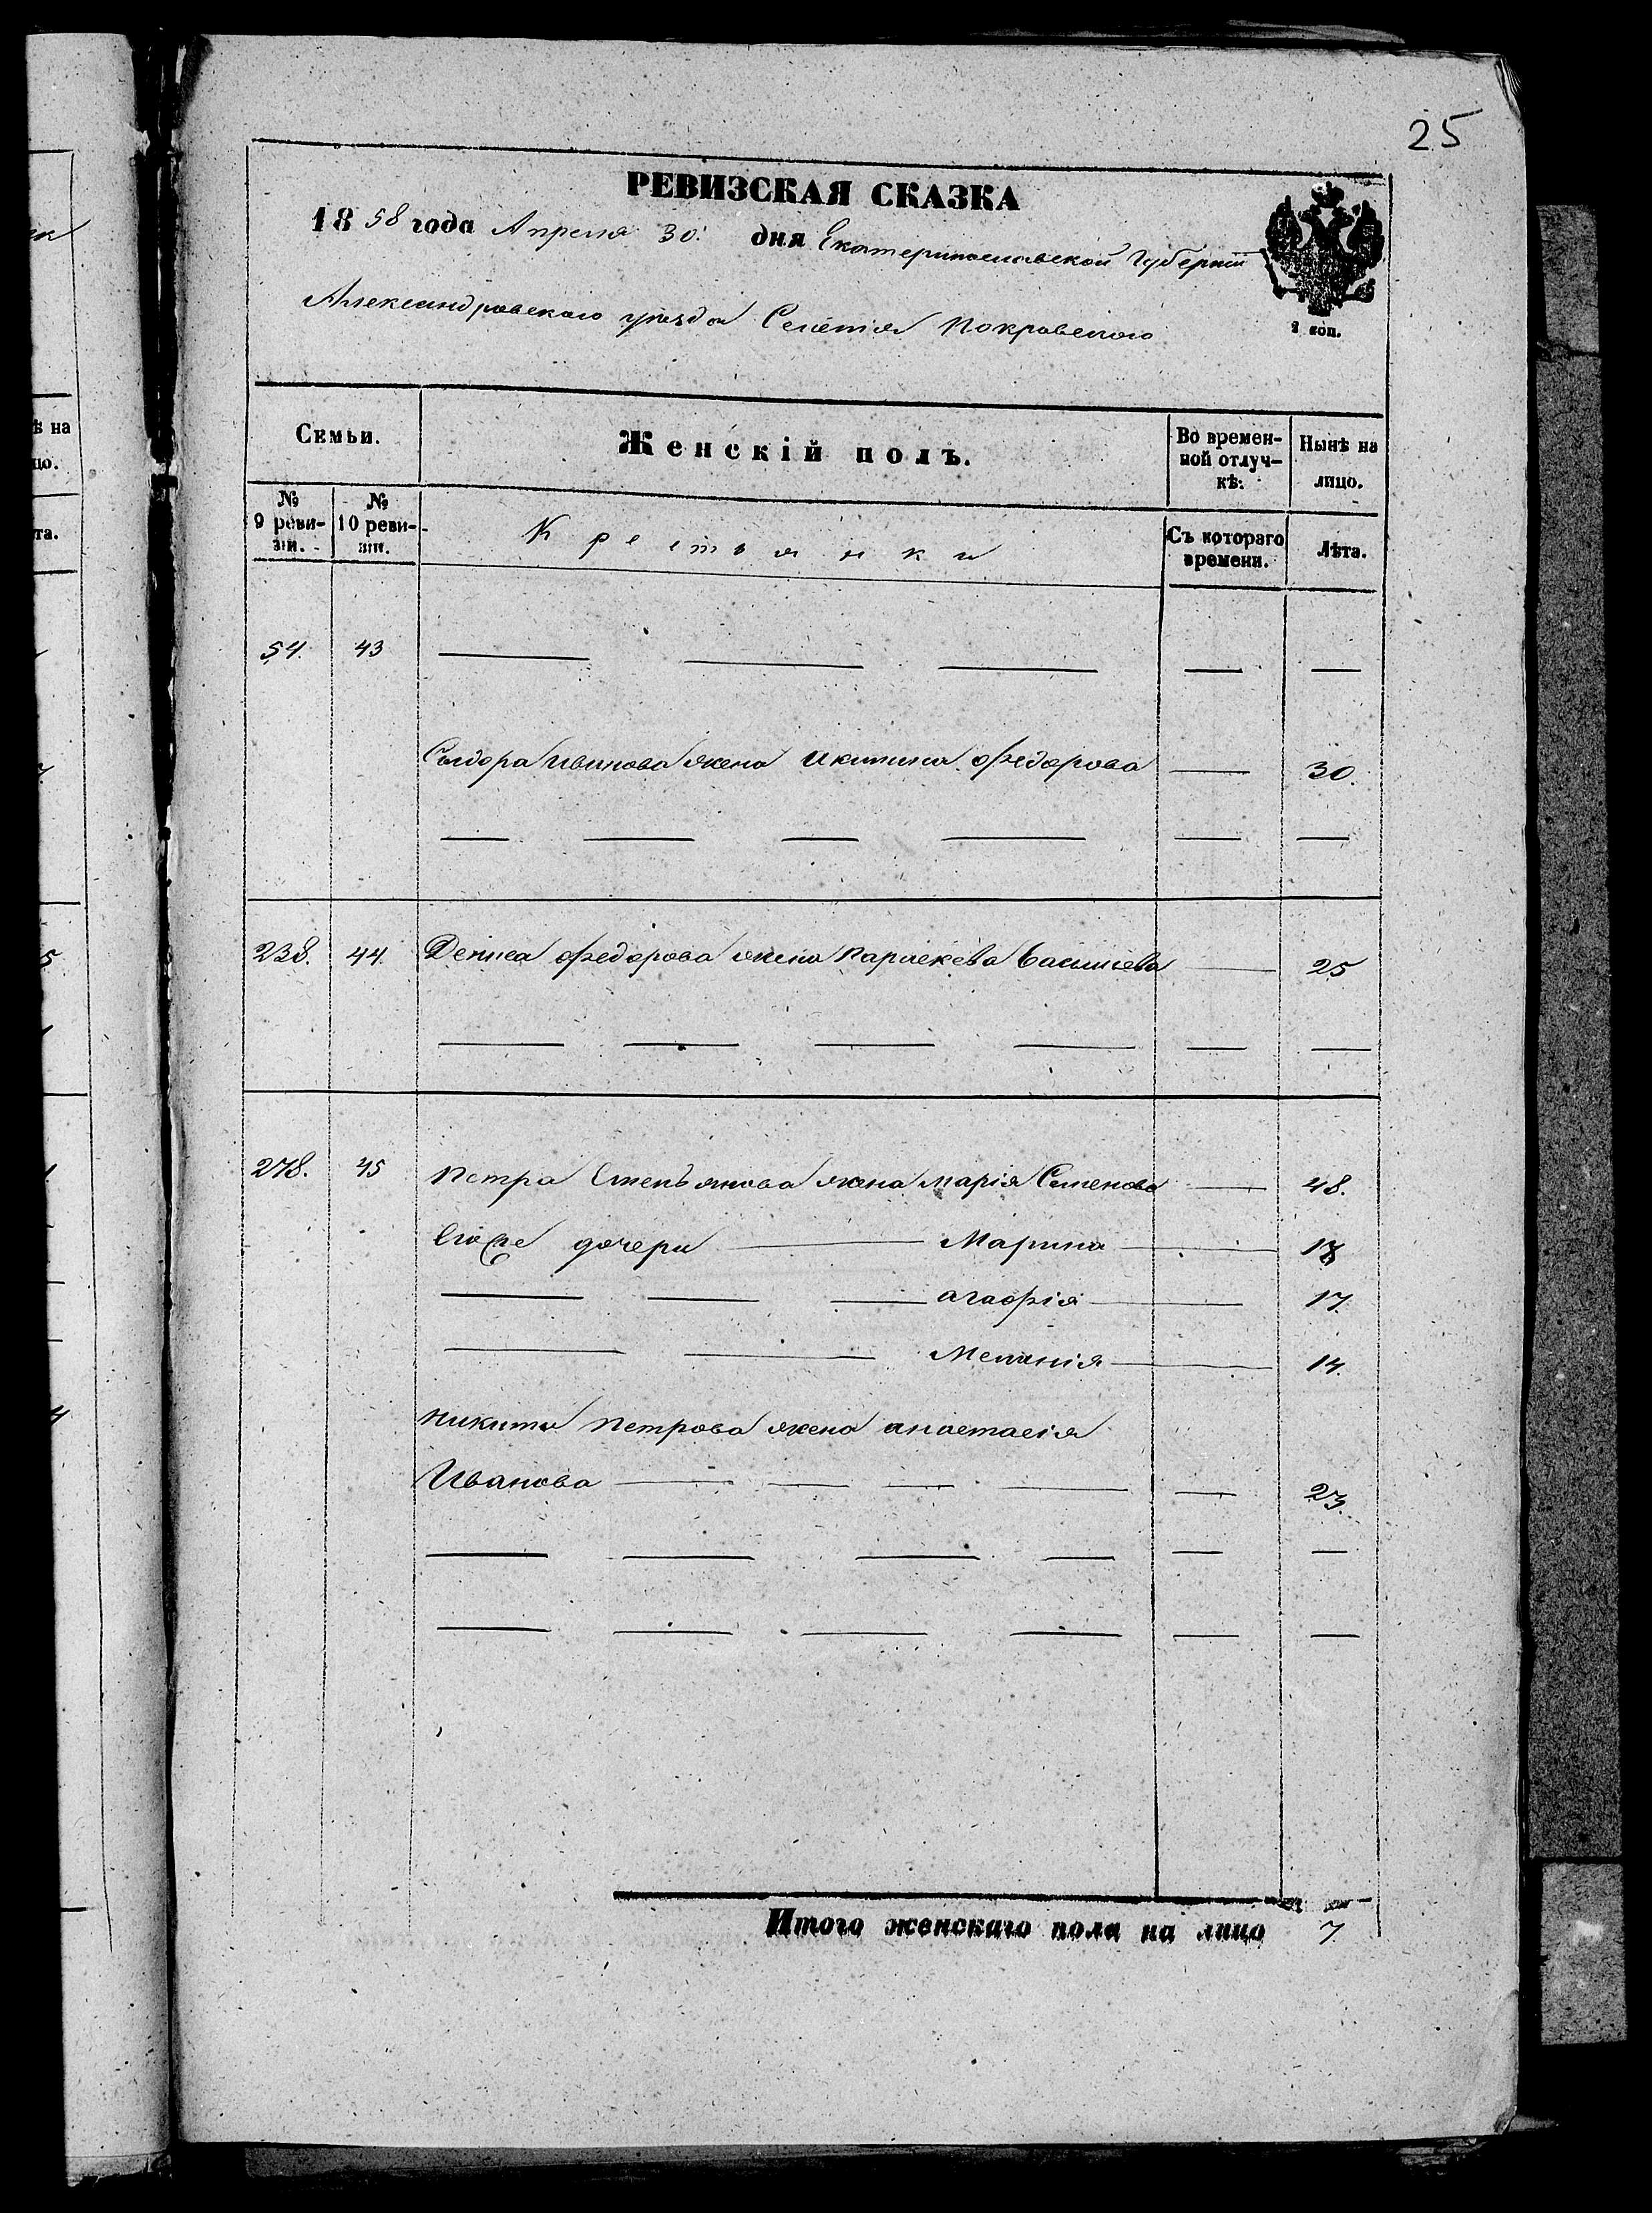 25
РЕВИЗСКАЯ СКАЗКА
1858 года Апреля 30. дня Екатеринославской Губернiи
Александровскаго уезда Селенiя Покровского
1 коп.
Семьи. Женскiй полъ. Во времен- Нынѣ на
ной отлуч- лицо.
кѣ:
№ №
9 реви- 10 реви- Крестьянки Съ котораго Лѣта.
зiи. зiи. времени.
54. 43
Сыдора Иванова жена Акилина Федорова 30.
238. 44. Дениса Федорова жена Параскева Васильева 25
278. 45 Петра Степьянова жена Марiя Семенова 48.
Егоже дочери Марина 18
Агафiя 17.
Меланiя 14.
Никиты Петрова жена Анастасiя
Иванова 23.
Итого женскаго пола на лицо 7.